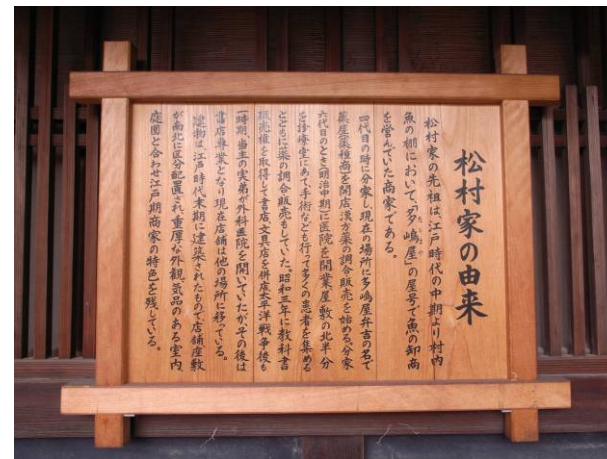 松村家の由来
松村家の先祖は、江戸時代の中期より村内
魚の棚において、「多嶋屋」の屋号で魚の卸商
を営んでいた商家である。
四代目の時に分家し、現在の場所に多嶋屋弁吉の名で
薬屋(薬種商)を開店、漢方薬の調合販売を始める。分家
六代目のとき、明治中期に医院を開業、屋敷の北半分
を診療室にあて、手術なども行って多くの患者を集める
とともに薬の調合販売もしていた。昭和三年に教科書
販売権を取得して書店、文具店を併店、太平洋戦争後も
一時期、当主の実弟が外科医院を開いていたが、その後は
書店専業となり現在店舗は他の場所に移っている。
建物は、江戸時代末期に建築されたもので、店舗、座敷
が南北に区分配置され、重厚な外観、気品のある室内、
庭園と合わせ江戸期商家の特色を残している。